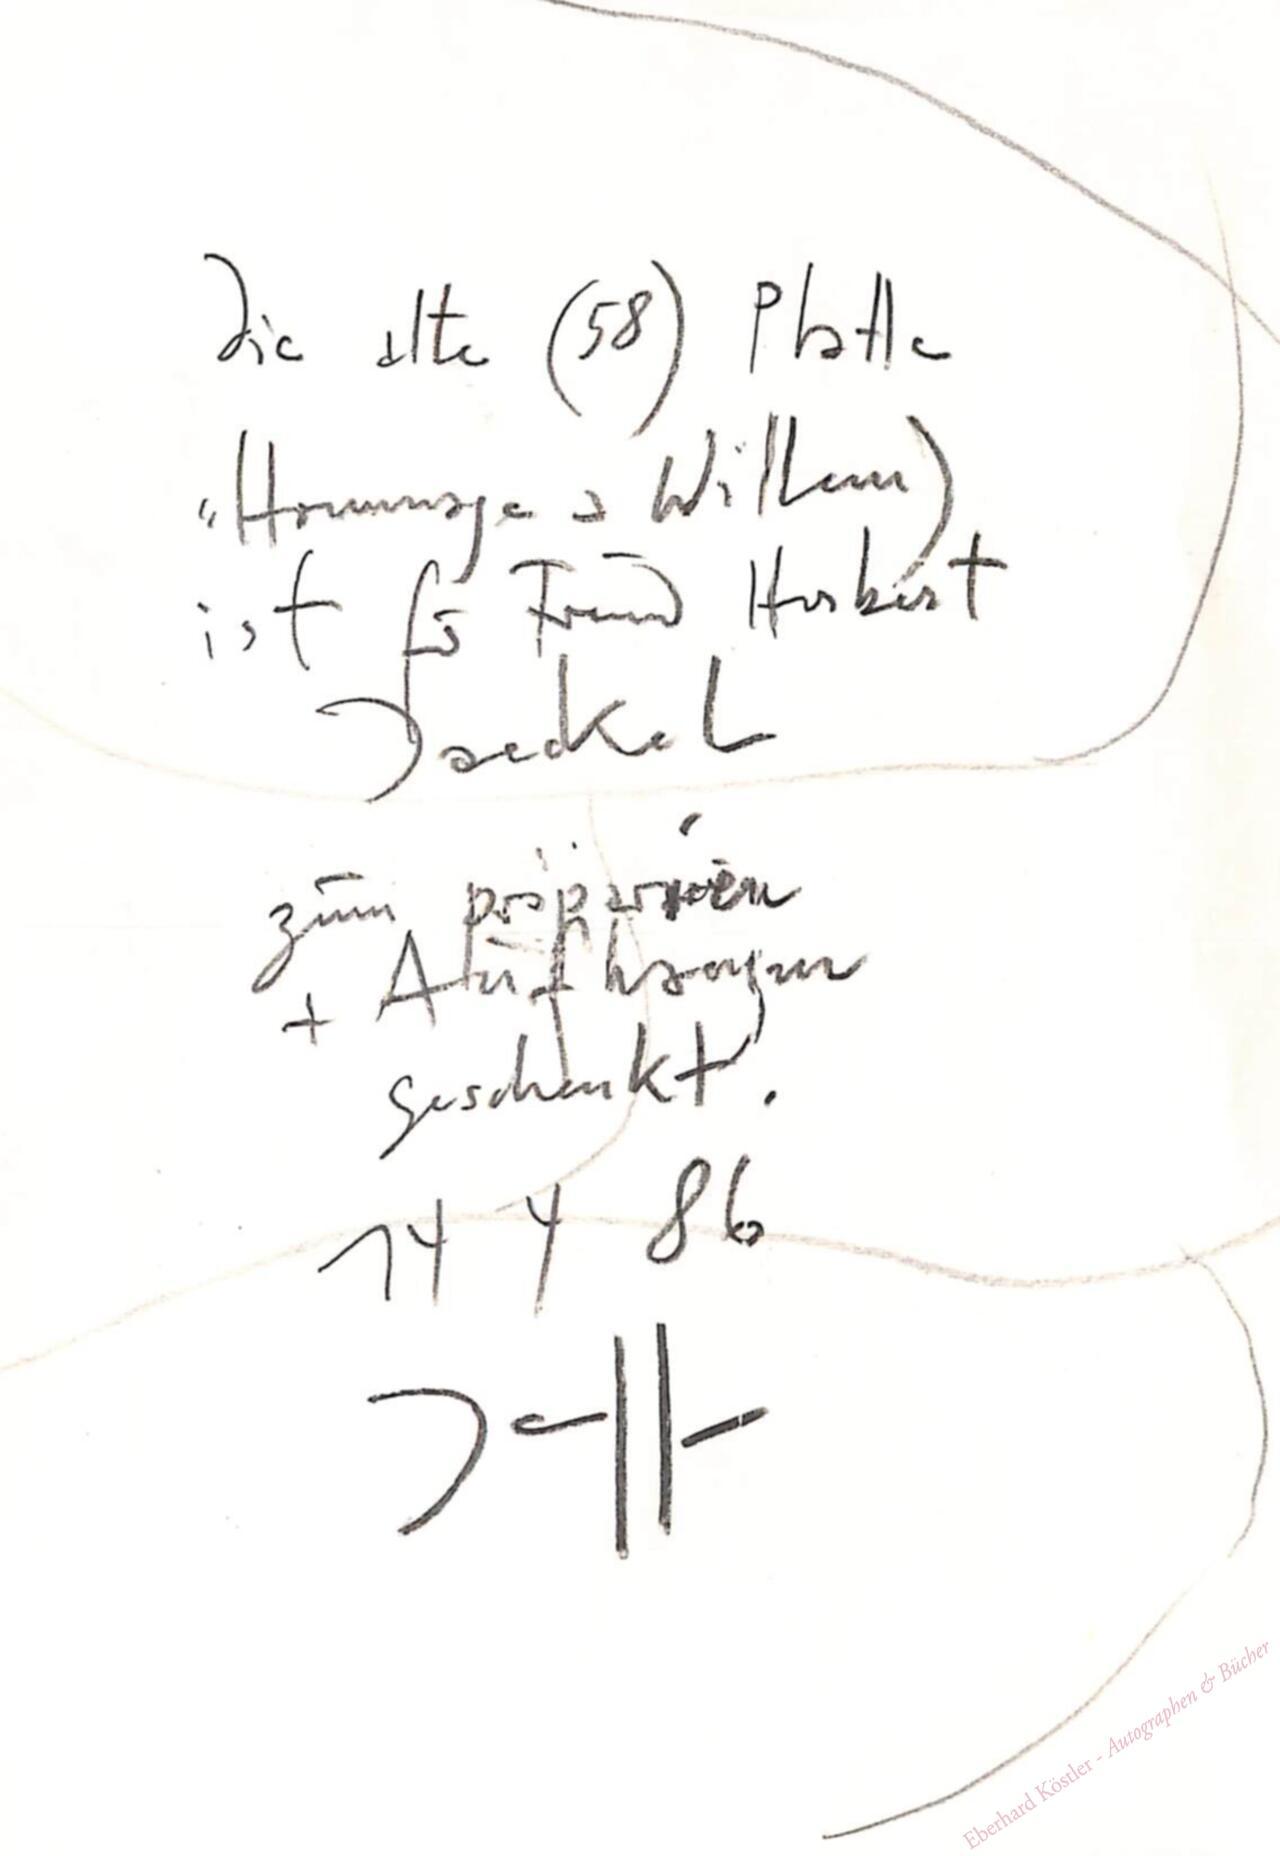 Die alte (58) Platte
"Hommage a Willem)
ist für Freund Herbert
Jaeckel
zum präparieren
+ Aufhängen
geschenkt.
14 4 86
Eberhard Köstler - Autographen & Bücher